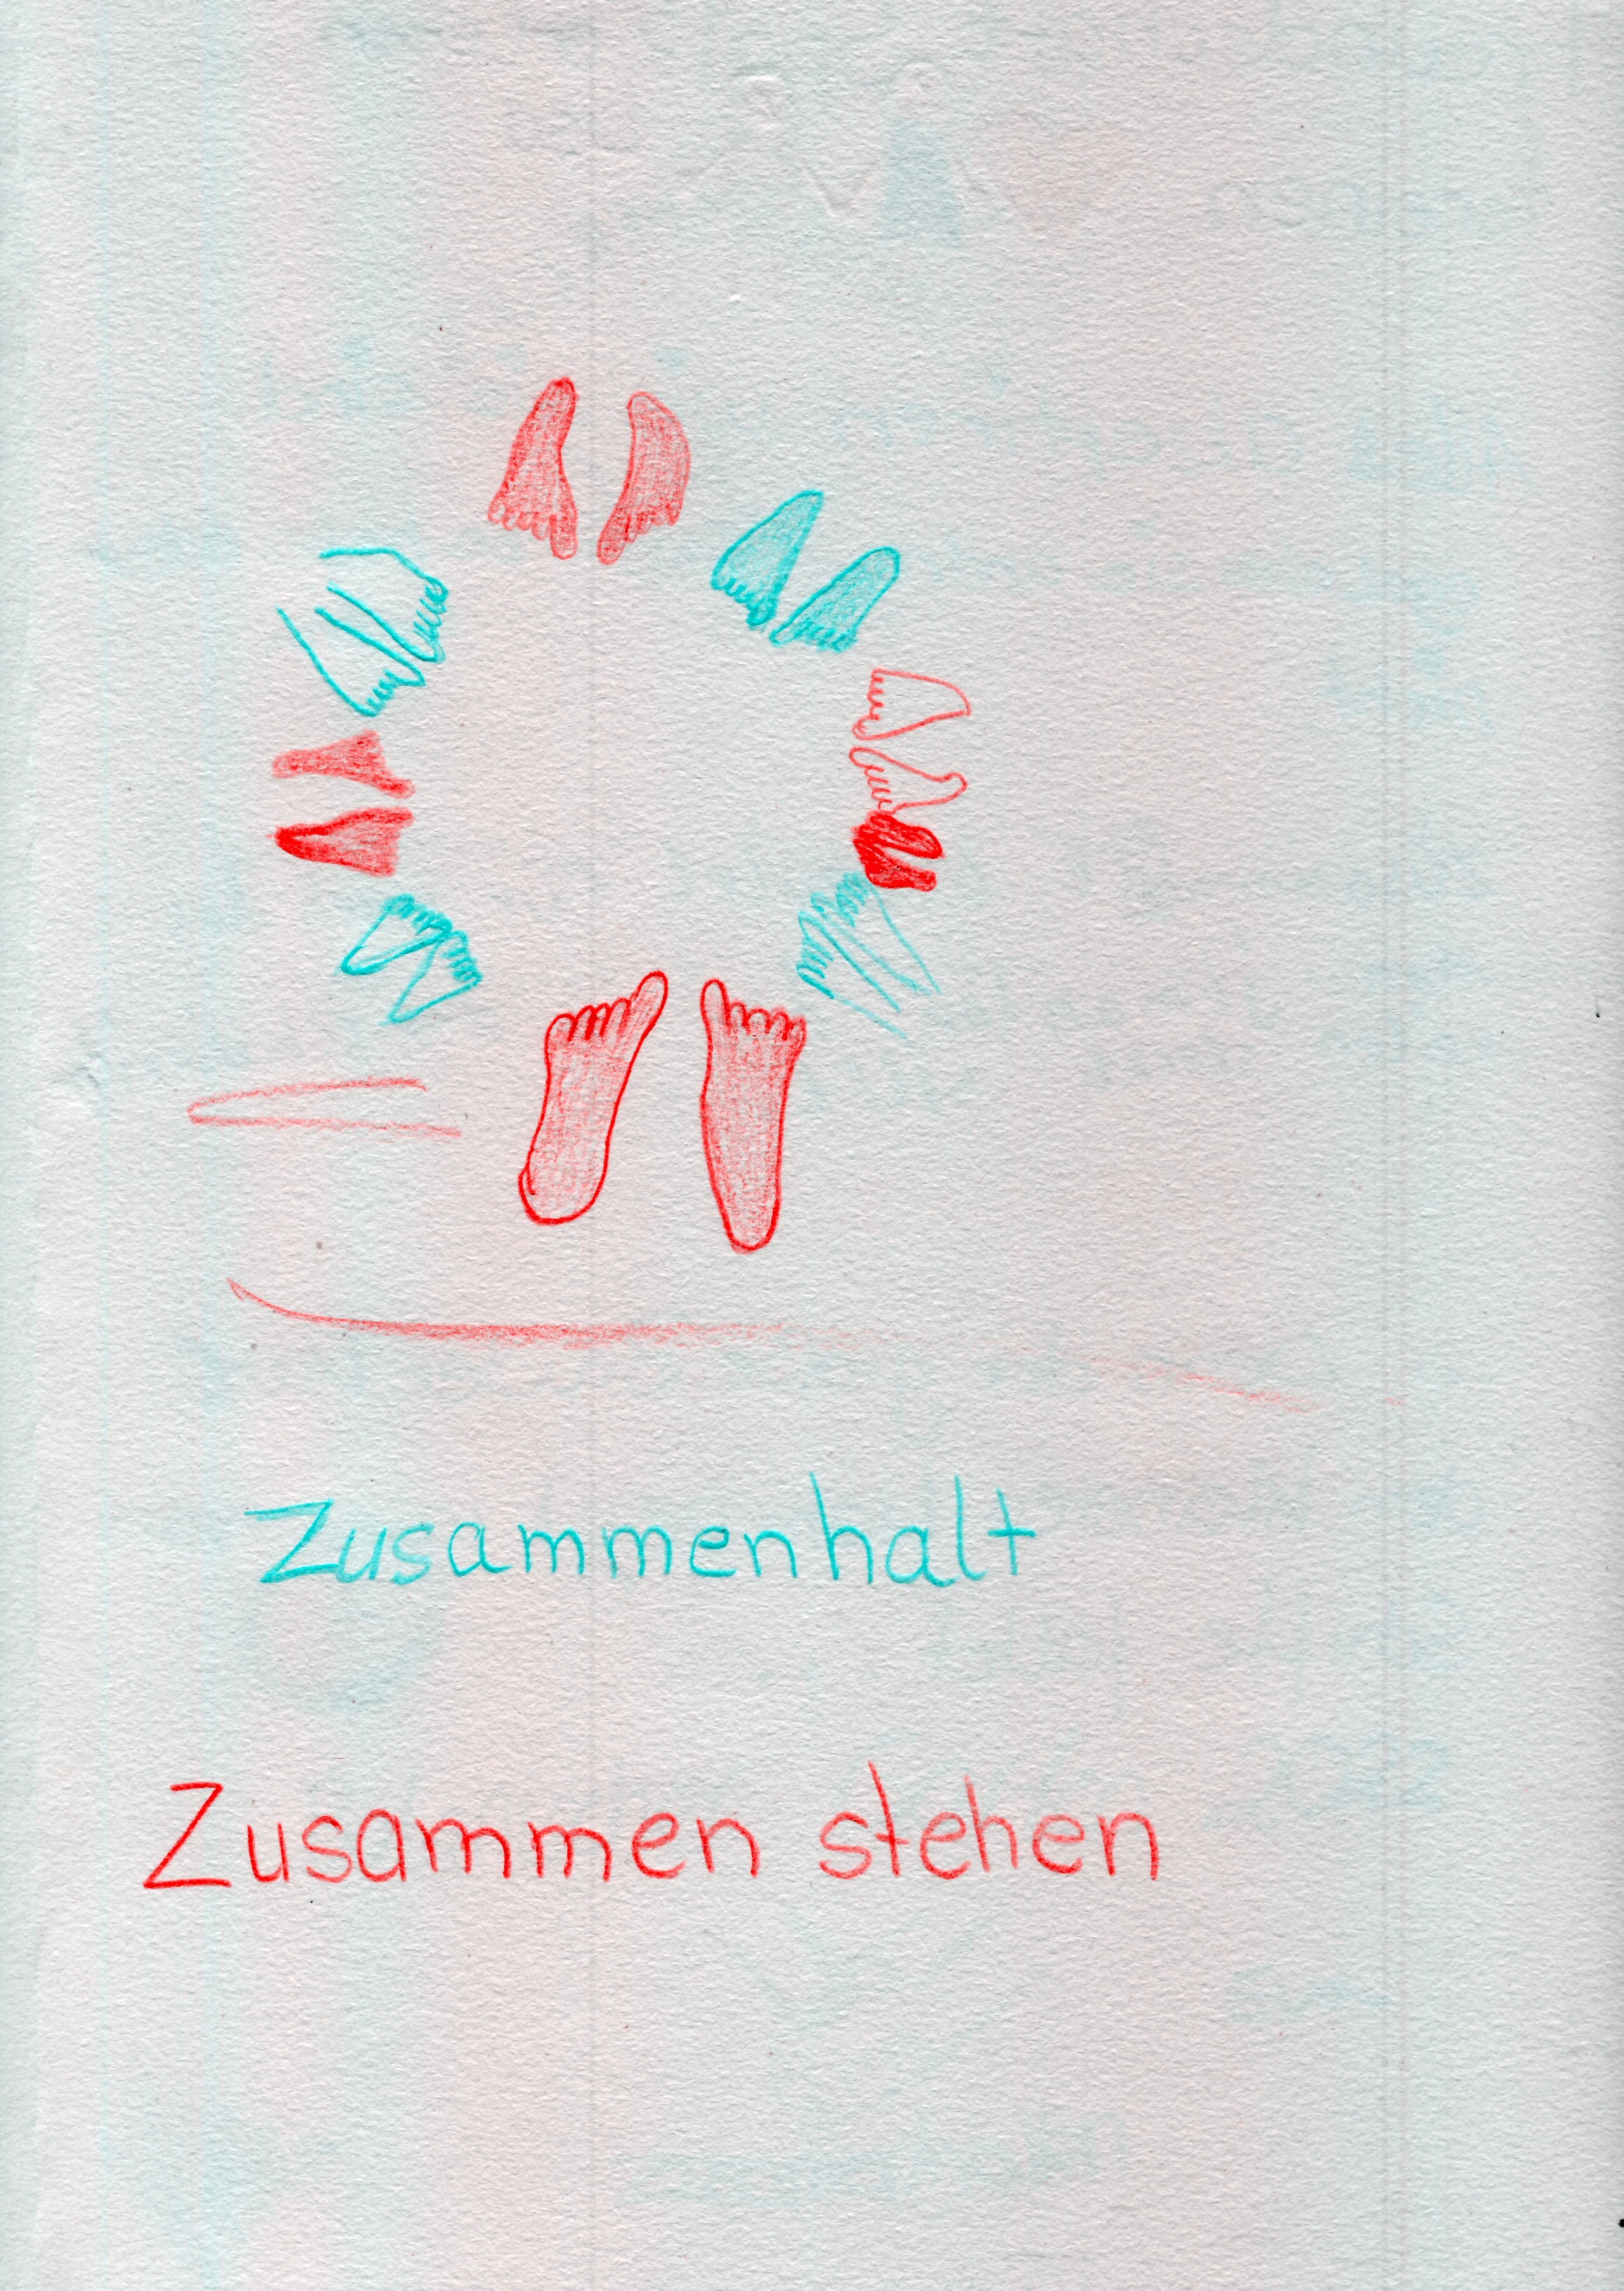 Zusammenhalt
Zusammen stehen